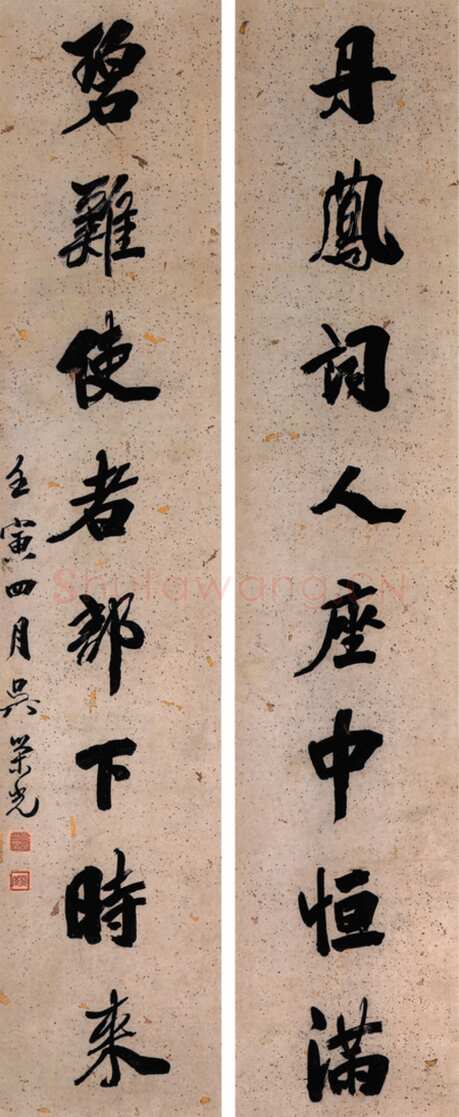 丹鳳詞人座中恒滿
碧雞使者部下時來
壬寅四月吳榮光
Shufawang.CN